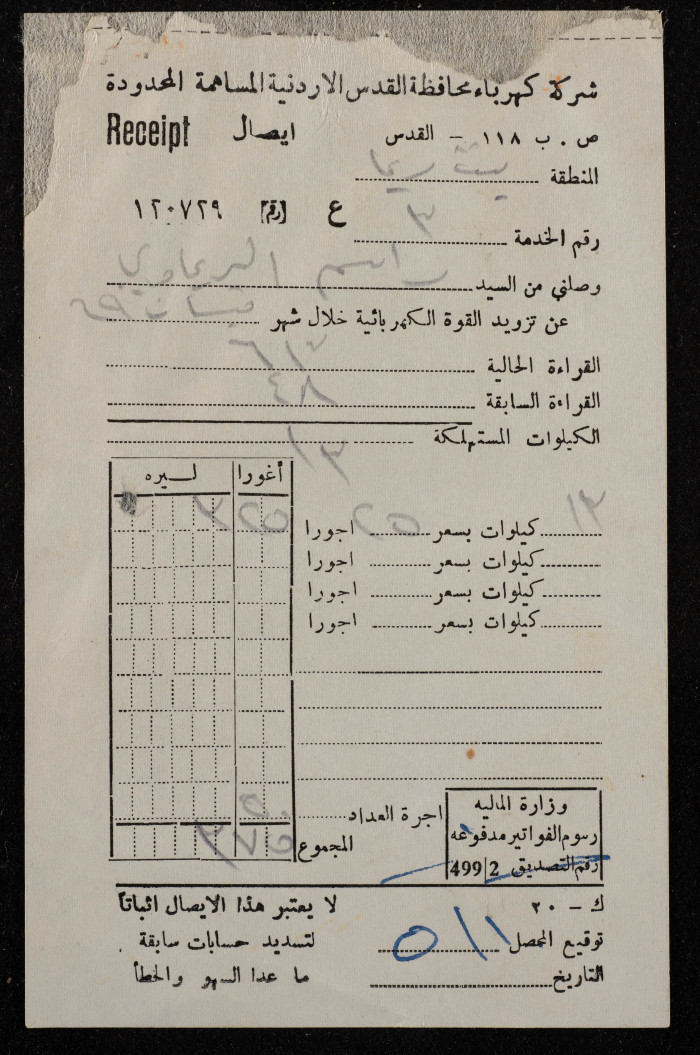 شركة كهرباء محافظة القدس الاردنية المساهمة المحدودة
ص . ب ١١٨ - القدس ايصال Receipt
المنطقة بيت ريما
ع [رقم] ١٢٠٧٢٩
رقم الخدمة ٣
وصلني من السيد راسم الريماوي
عن تزويد القوة الكهربائية خلال شهر نيسان
القراءة الحالية ٦١٣
القراءة السابقة
الكيلوات المستهلكة ١٣
أغورا ليره
١٣ كيلوات بسعر ٥٢ اجورا
كيلوات بسعر اجورا
كيلوات بسعر اجورا
كيلوات بسعر اجورا
اجرة العداد
المجموع
وزارة الماليه
رسوم الفواتير مدفوعه
رقم التصديق 499/2
ك - ٢٠ لا يعتبر هذا الايصال اثباتاً
توقيع المحصل لتسديد حسابات سابقة
التاريخ ما عدا السهو والخطأ